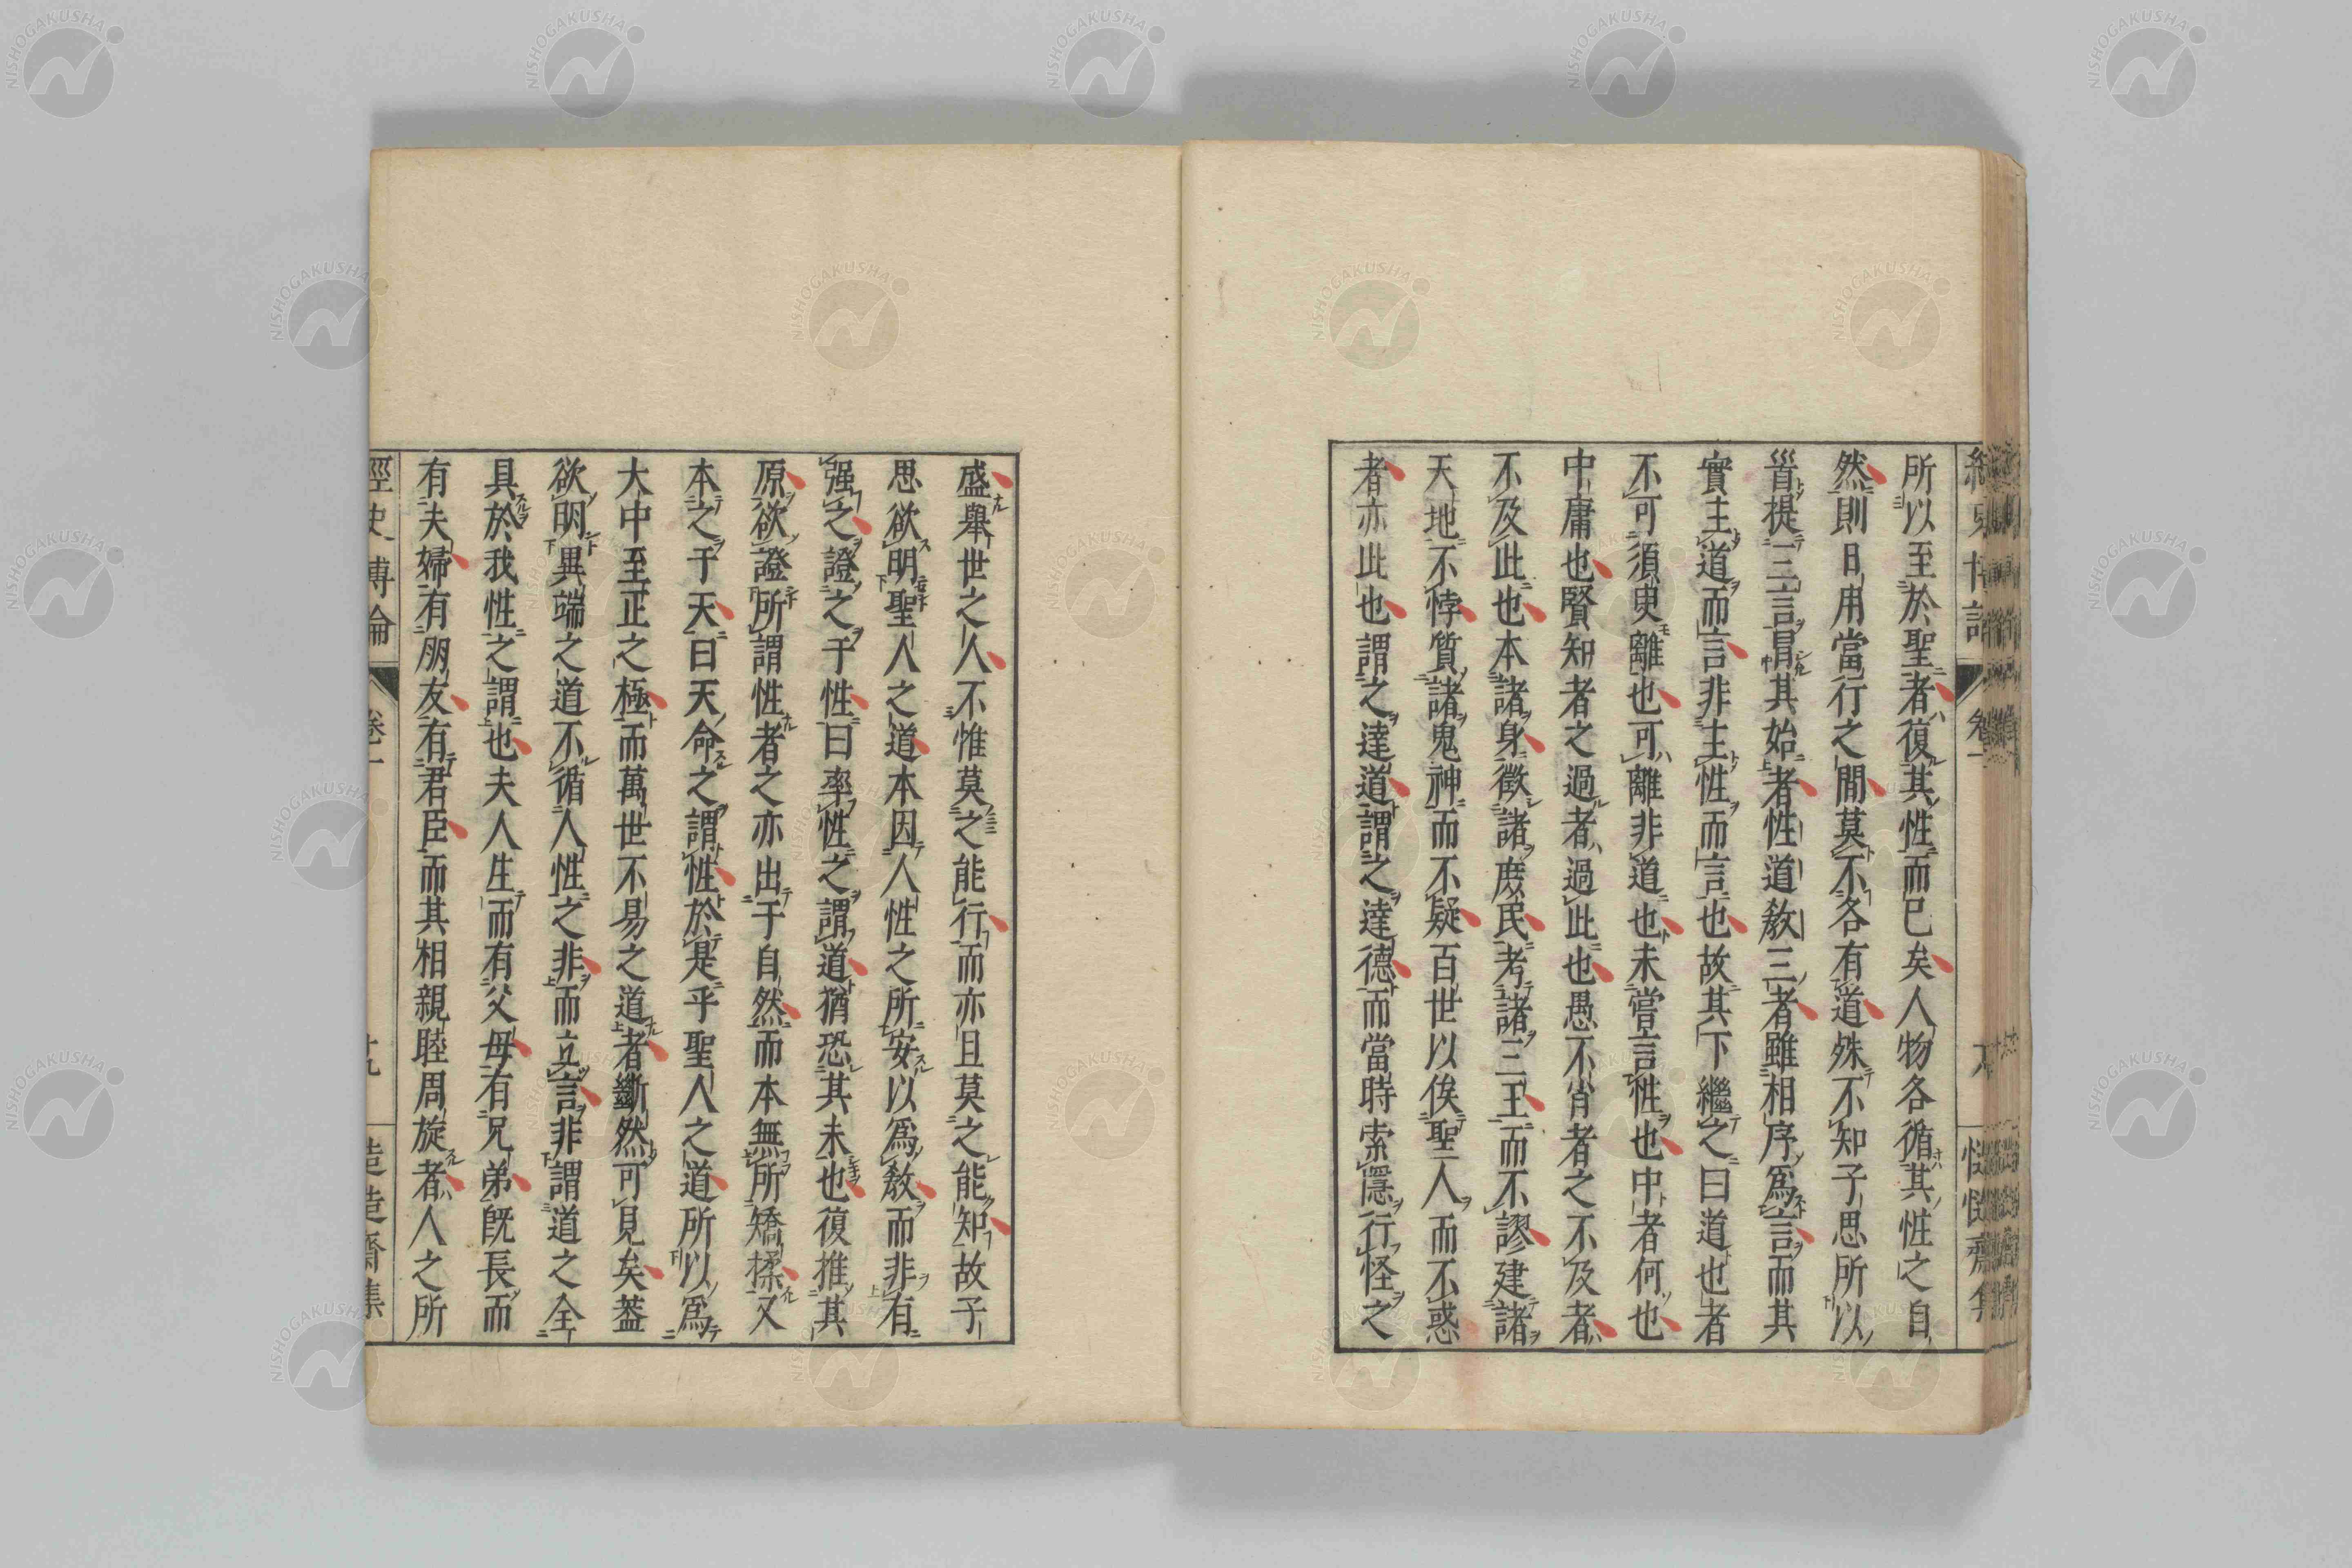 所以至於聖者復其性而已矣人物各循其性之自
然則日用當行之間莫不各有道殊不知子思所以
首提三言冒其始者性道教三者雖相序爲言而其
實主道而言非主性而言也故其下繼之曰道也者
不可須臾離也可離非道也未嘗言性也中者何也
中庸也賢知者之過者過此也愚不肖者之不及者
不及此也本諸身徵諸庶民考諸三王而不謬建諸
天地不悖質諸鬼神而不疑百世以俟聖人而不惑
者亦此也謂之達道謂之達德而當時索隱行怪之
盛舉世之人不惟莫之能行而亦且莫之能知故子
思欲明聖人之道本因人性之所安以爲教而非有
强之證之于性曰率性之謂道猶恐其未也復推其
原欲證所謂性者之亦出于自然而本無所矯揉又
本之于天曰天命之謂性於是乎聖人之道所以爲
大中至正之極而萬世不易之道者斷然可見矣蓋
欲明異端之道不循人性之非而立言非謂道之全
具於我性之謂也夫人生而有父母有兄弟既長而
有夫婦有朋友有君臣而其相親睦周旋者人之所
經史博論 卷一 十九 慥慥齋集